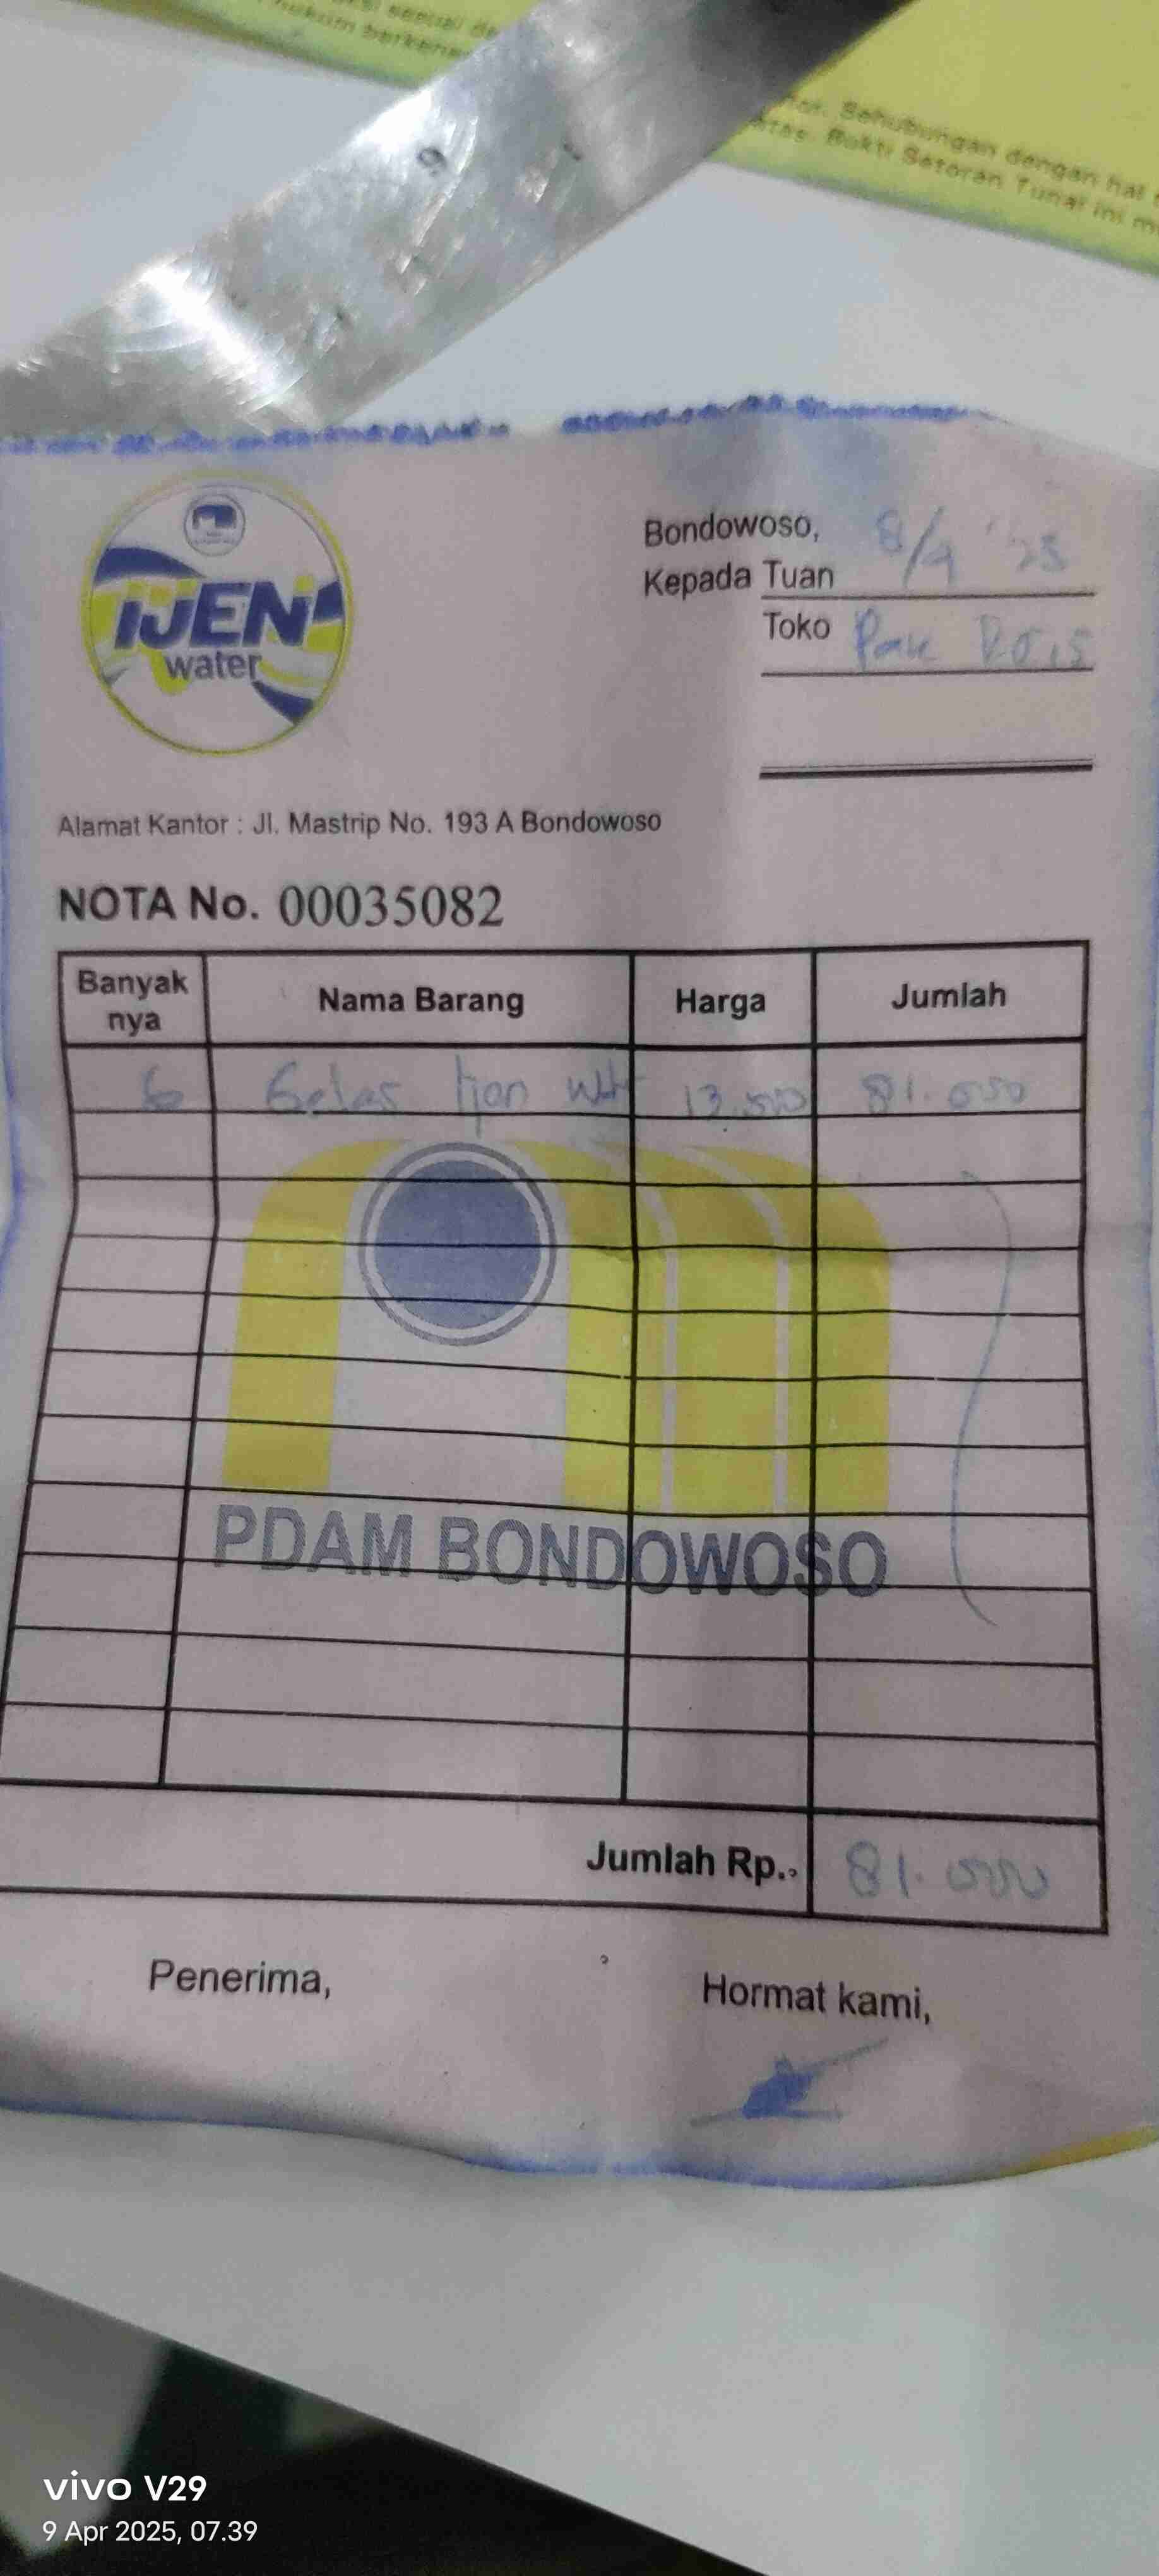 sesuai de
hukum berkena
Sehubungan dengan hal
atas. Bukti Setoran Tunai ini m
IJEN
water
Bondowoso, 8/4 '25
Kepada Tuan
Toko Pak Rois
Alamat Kantor : Jl. Mastrip No. 193 A Bondowoso
NOTA No. 00035082
Banyak nya Nama Barang Harga Jumlah
6 Gelas Ijen Wtr 13.500 81.000
PDAM BONDOWOSO
Jumlah Rp.. 81.000
Penerima, Hormat kami,
vivo V29
9 Apr 2025, 07.39